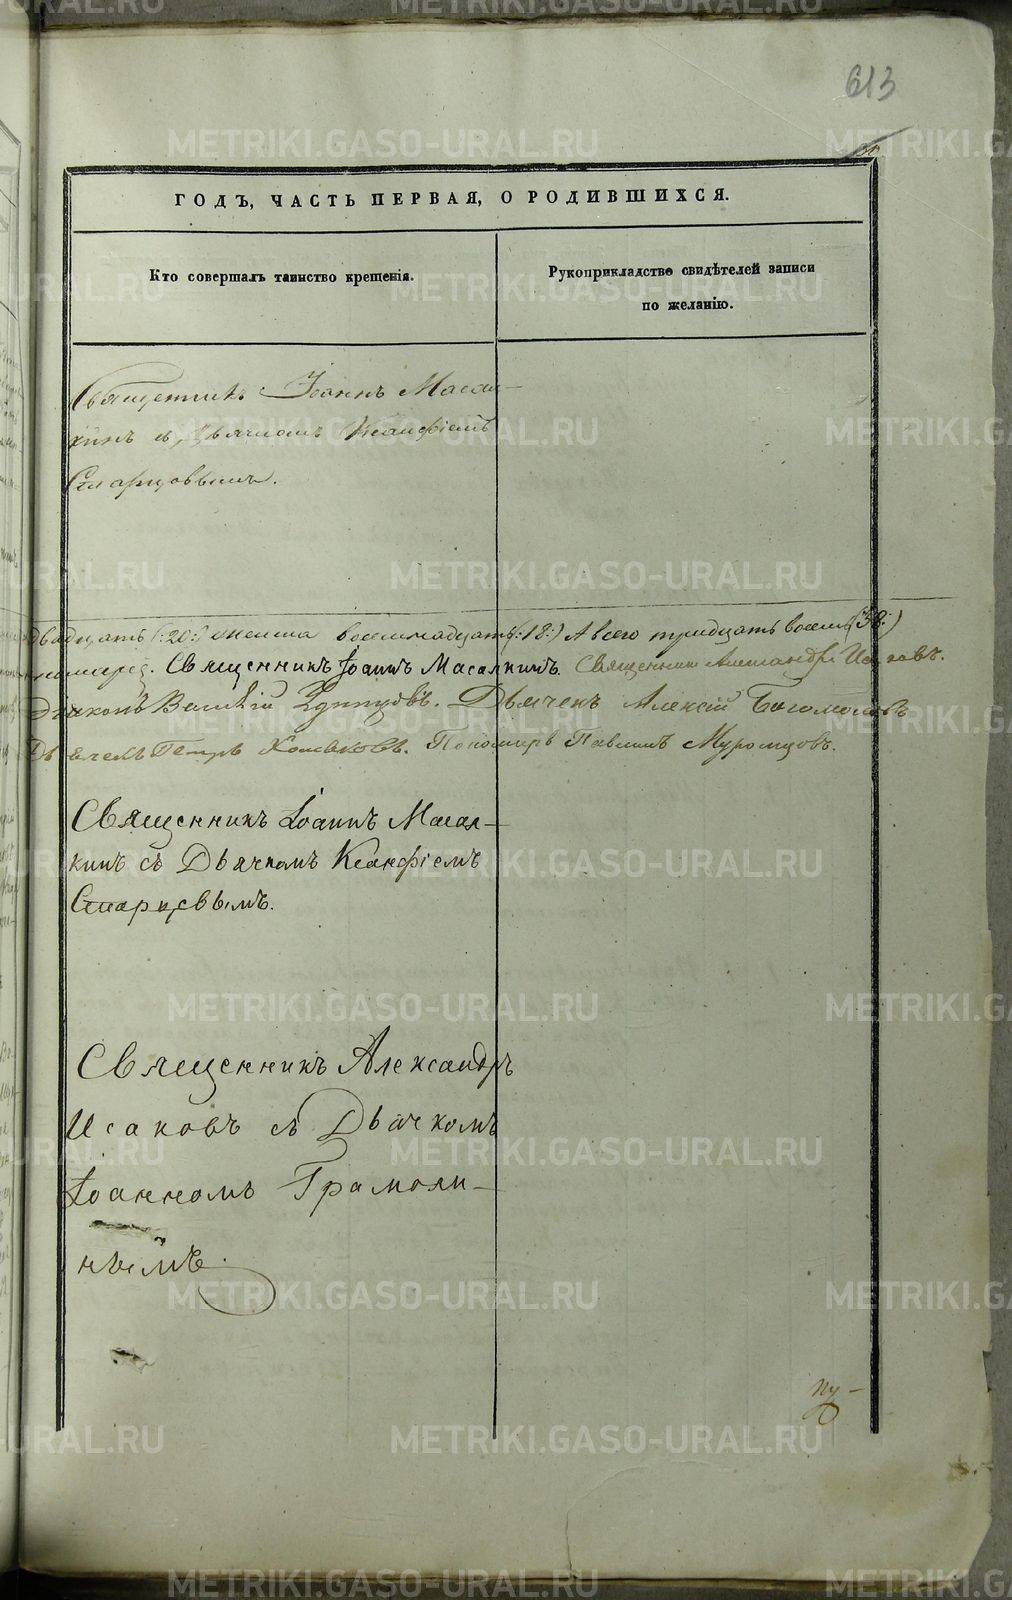 613
ГОДЪ, ЧАСТЬ ПЕРВАЯ, О РОДИВШИХСЯ.
Кто совершалъ таинство крещенія.
Рукоприкладство свидѣтелей записи
по желанію.
Священникъ Іоаннъ Масал-
кинъ съ Дьячкомъ Ксанфіемъ
Старцовымъ.
Двадцать (:20:) женска восемнадцать (:18:) А всего тридцать восемь (:38:)
Священникъ Іоаннъ Масалкинъ. Священникъ Александръ Исаковъ.
Діаконъ Василій Удинцовъ. Дьячекъ Алексій Богомоловъ
Дьячекъ Петръ Пономарь Павлинъ Муромцовъ.
Священникъ Іоаннъ Масал-
кинъ съ Дьячкомъ Ксанфіемъ
Старцевымъ.
Священникъ Александръ
Исаковъ съ Дьячкомъ
Іоанномъ Грамоли-
нымъ.
METRIKI.GASO-URAL.RU